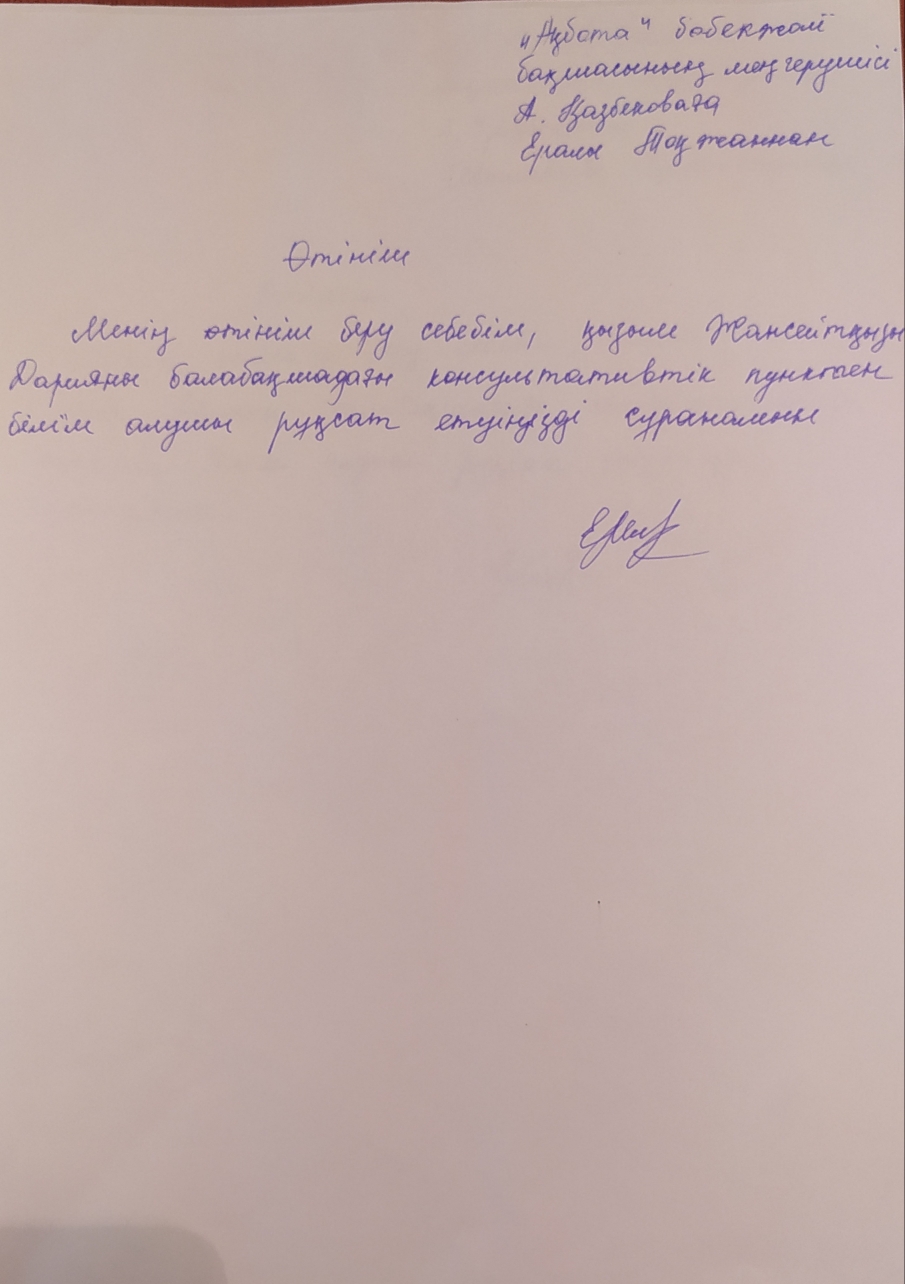 "Ақбота" бөбекжай
бақшасының меңгерушісі
А. Қазбековаға
Ералы Тоқжаннан
Өтініш
Менің өтініш беру себебім, қызым Жансейтқызы
Дарияны балабақшадағы консультативтік пунктпен
білім алушы рұқсат етуіңізді сұранамын